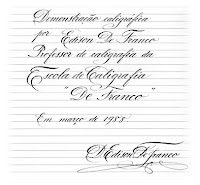 Demonstração caligráfica
por Edison De Franco
Professor de caligrafia da
Escola de Caligrafia
"De Franco"
Em março de 1983
D'Edison De Franco